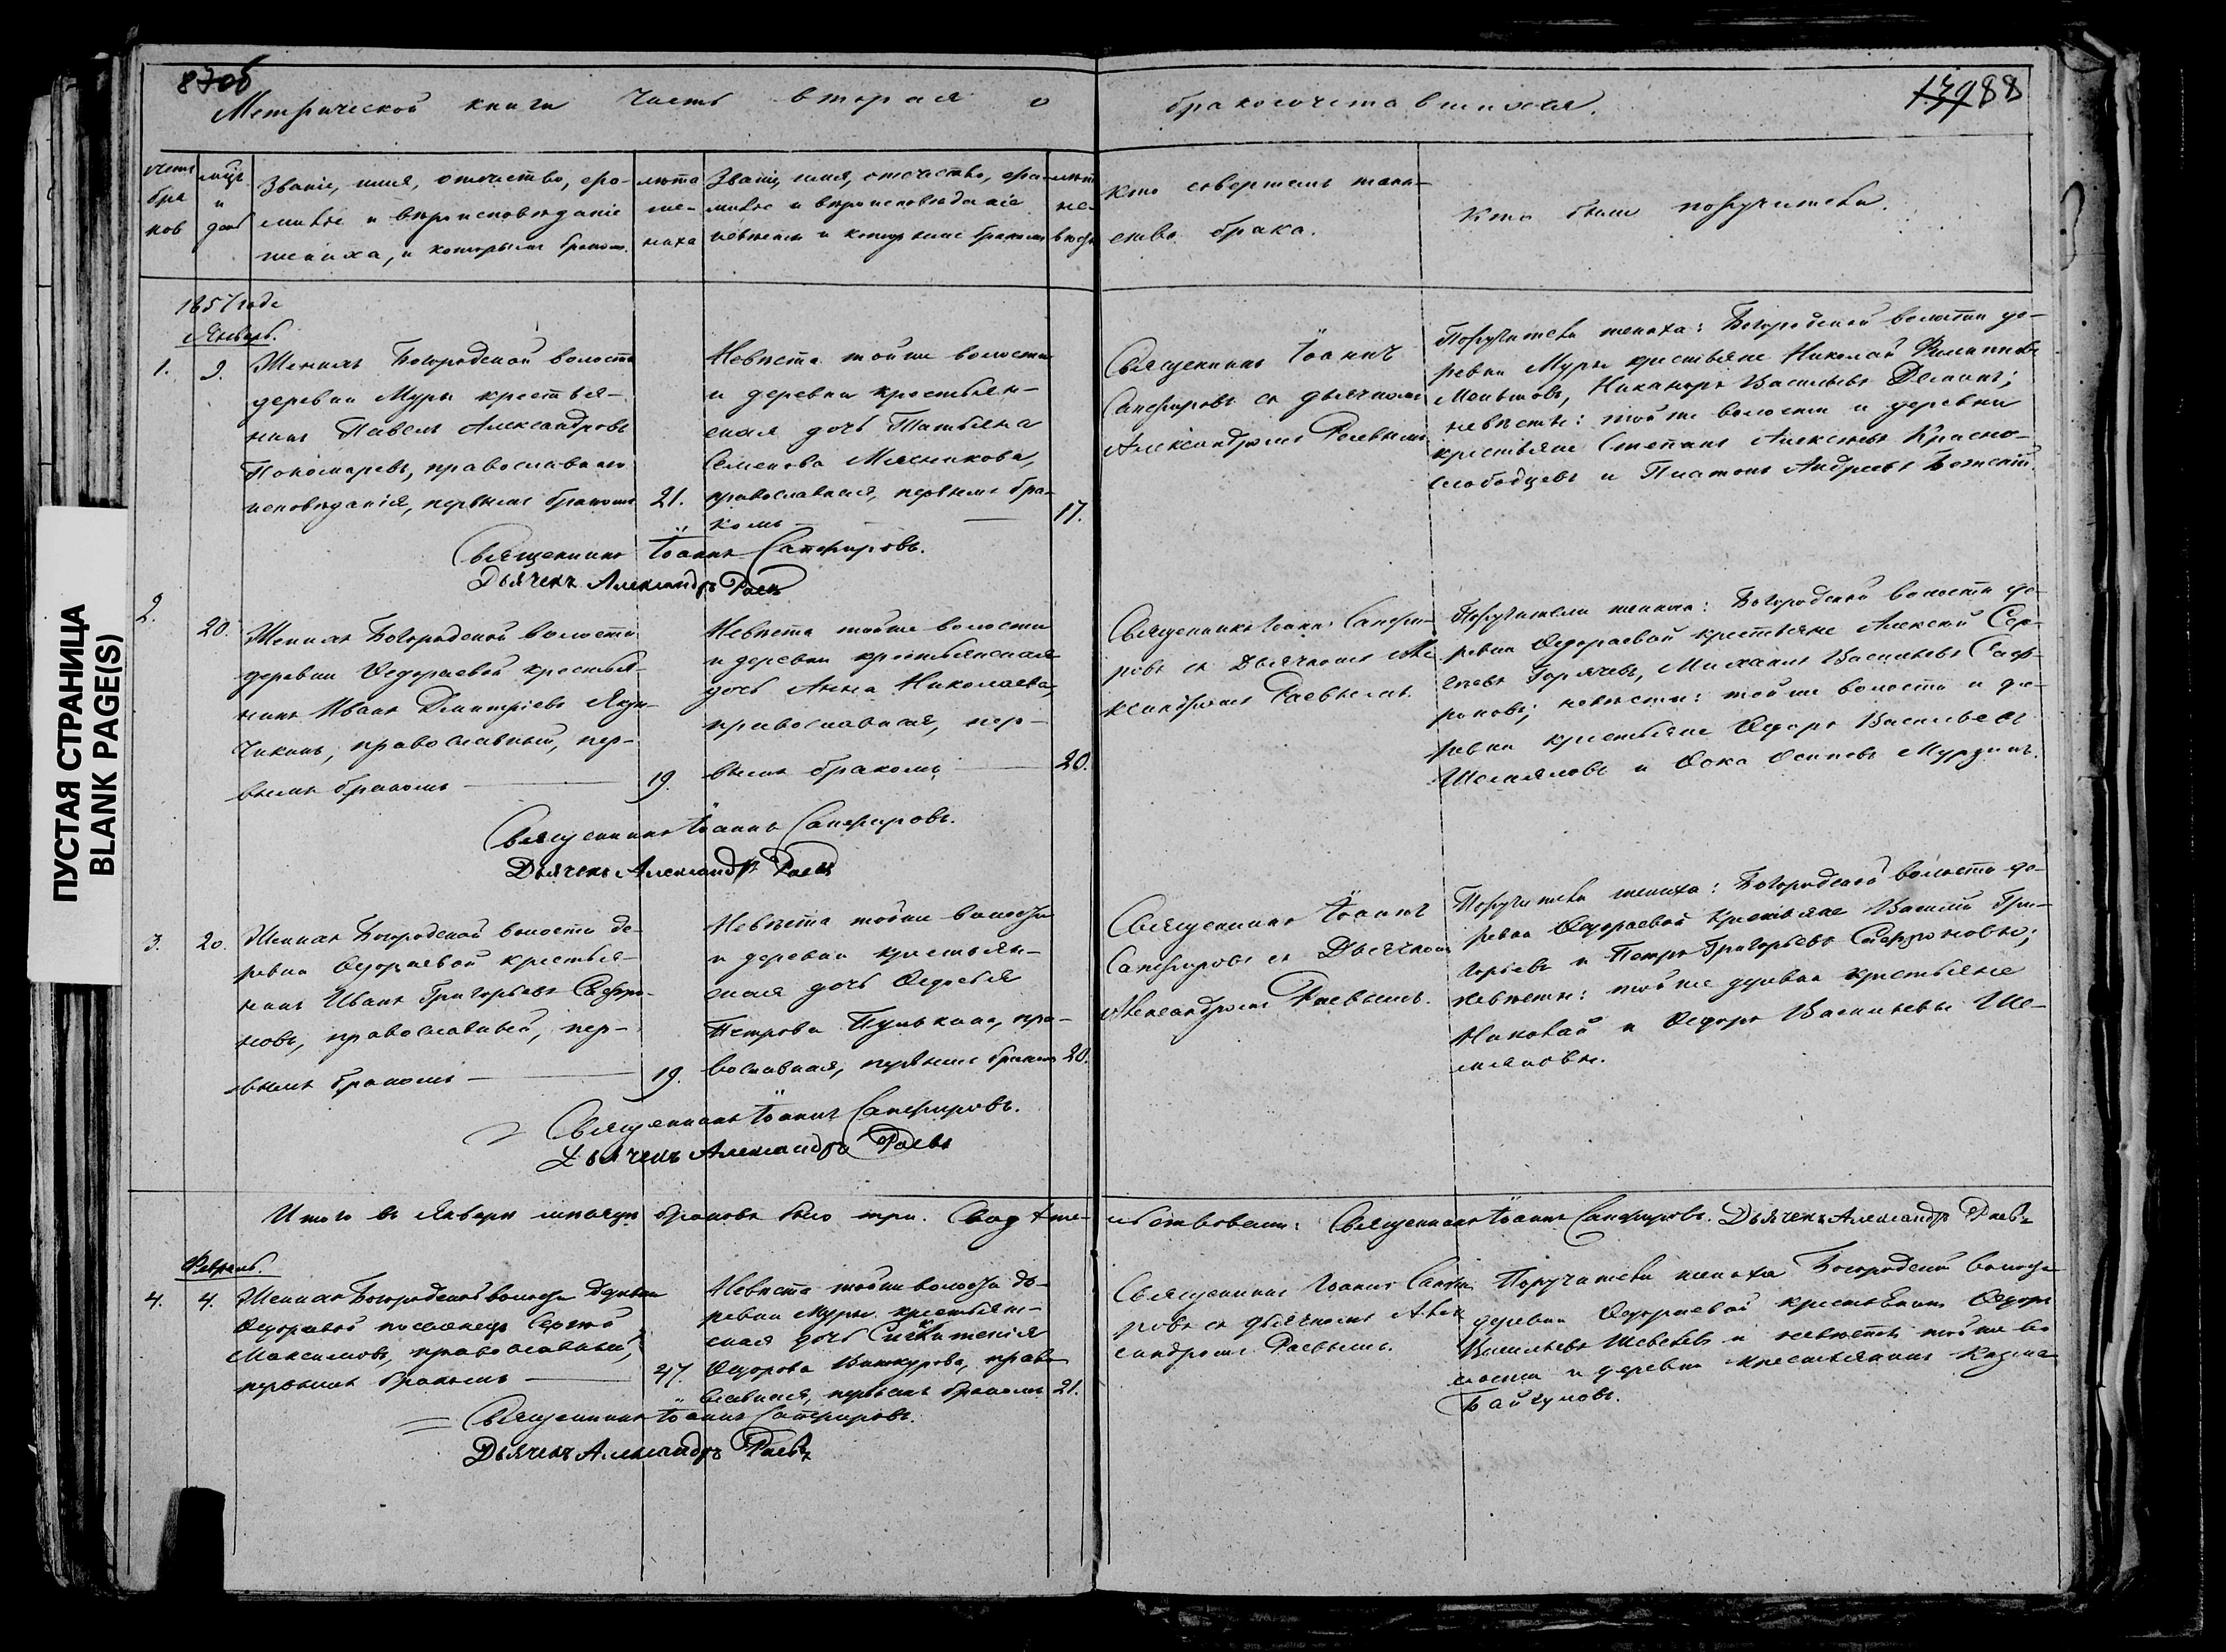 87об
13988
Метрической книги часть вторая о бракосочетавшихся.
счетъ браковъ
мцъ и день
Званіе, имя, отчество, фамилiя и вѣроисповѣданіе жениха, и которымъ бракомъ.
лѣта жениха
Званіе, имя, отчество, фамилiя и вѣроисповѣданіе невѣсты и которымъ бракомъ
лѣта невѣсты
Кто совершалъ таинство брака.
Кто были поручители.
1857 года
Январь.
1. 9.
Женихъ Богородской волости
деревни Муры крестья-
нинъ Павелъ Александровъ
Пономаревъ, православнаго
исповѣданія, первымъ бракомъ 21.
Невѣста тойже волости
и деревни крестьян-
ская дочь Татьяна
Семенова Мясникова,
православная, первымъ бра-
комъ 17.
Священникъ Іоаннъ
Сапфировъ съ дьячкомъ
Александромъ Раевымъ
Поручители жениха: Богородской волости де-
ревни Муры крестьяне Николай Филиппов
Меньшовъ, Никаноръ Васильевъ Деминъ;
невѣсты: тойже волости и деревни
крестьяне Степанъ Алексѣевъ Красно-
слободцевъ и Платонъ Андреевъ
Священникъ Іоаннъ Сапфировъ.
Дьячекъ Александръ Раевъ
2. 20.
Женихъ Богородской волости
деревни Ѳедораевой крестья-
нинъ Иванъ Дмитріевъ
православный, пер-
вымъ бракомъ 19.
Невѣста тойже волости
и деревни крестьянская
дочь Анна Николаева,
православная, пер-
вымъ бракомъ 20.
Священникъ Іоаннъ Сапфи-
ровъ съ Дьячкомъ Але
ксандромъ Раевымъ.
Поручители жениха: Богородской волости де-
ревни Ѳедораевой крестьяне Алексѣй Сер-
гѣевъ Горячевъ, Михаилъ Васильевъ Саф-
роновъ; невѣсты: тойже волости и де-
ревни крестьяне Ѳедоръ Васильевъ
Шемяковъ и Ѳока Осиповъ Мурзинъ.
Священникъ Іоаннъ Сапфировъ.
Дьячекъ Александръ Раевъ
3. 20.
Женихъ Богородской волости де-
ревни Ѳедораевой крестья-
нинъ Иванъ Григорьевъ Сафро-
новъ, православный, пер-
вымъ бракомъ 19.
Невѣста тойже волости
и деревни крестьян-
ская дочь Ѳедосья
Петрова Пулькина, пра-
вославная, первымъ бракомъ 20.
Священникъ Іоаннъ
Сапфировъ съ Дьячкомъ
Александромъ Раевымъ.
Поручители жениха: Богородской волости де-
ревни Ѳедораевой крестьяне Василій Гри-
горьевъ и Петръ Григорьевъ Сафроновы;
невѣсты: тойже деревни крестьяне
Николай и Ѳедоръ Васильевы Ше-
мяковы.
Священникъ Іоаннъ Сапфировъ.
Дьячекъ Александръ Раевъ
Итого въ Январѣ мѣсяцѣ браковъ было три. Свидѣтельствовали: Священникъ Іоаннъ Сапфировъ. Дьячекъ Александръ Раевъ
Февраль.
4. 4.
Женихъ Богородской волости деревни
Ѳедораевой поселенецъ Сергѣй
Максимовъ, православный,
первымъ бракомъ 47.
Невѣста тойже волости де-
ревни Муры крестьян-
ская дочь
Ѳедорова право
славная, первымъ бракомъ 21.
Священникъ Іоаннъ Сапфи
ровъ съ дьячкомъ Алек
сандромъ Раевымъ.
Поручители жениха Богородской волости
деревни Ѳедораевой крестьянинъ Ѳедоръ
Васильевъ и невѣсты тойже во
лости и деревни крестьянинъ Козма
Байгуловъ.
Священникъ Іоаннъ Сапфировъ.
Дьячекъ Александръ Раевъ
ПУСТАЯ СТРАНИЦА
BLANK PAGE(S)